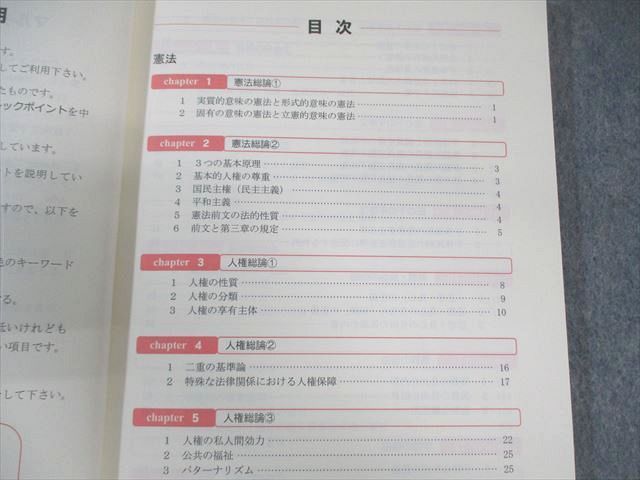 用
す。
してご利用下さい。
たものです。
ックポイントを中
しています。
ントを説明してい
すので、以下を
色のキーワード
る。
低いけれども
い項目です。
して下さい。
目 次
憲法
chapter 1 憲法総論①
1 実質的意味の憲法と形式的意味の憲法 1
2 固有の意味の憲法と立憲的意味の憲法 1
chapter 2 憲法総論②
1 3つの基本原理 3
2 基本的人権の尊重 3
3 国民主権（民主主義） 4
4 平和主義 4
5 憲法前文の法的性質 4
6 前文と第三章の規定 5
chapter 3 人権総論①
1 人権の性質 8
2 人権の分類 9
3 人権の享有主体 10
chapter 4 人権総論②
1 二重の基準論 16
2 特殊な法律関係における人権保障 17
chapter 5 人権総論③
1 人権の私人間効力 22
2 公共の福祉 25
3 パターナリズム 25